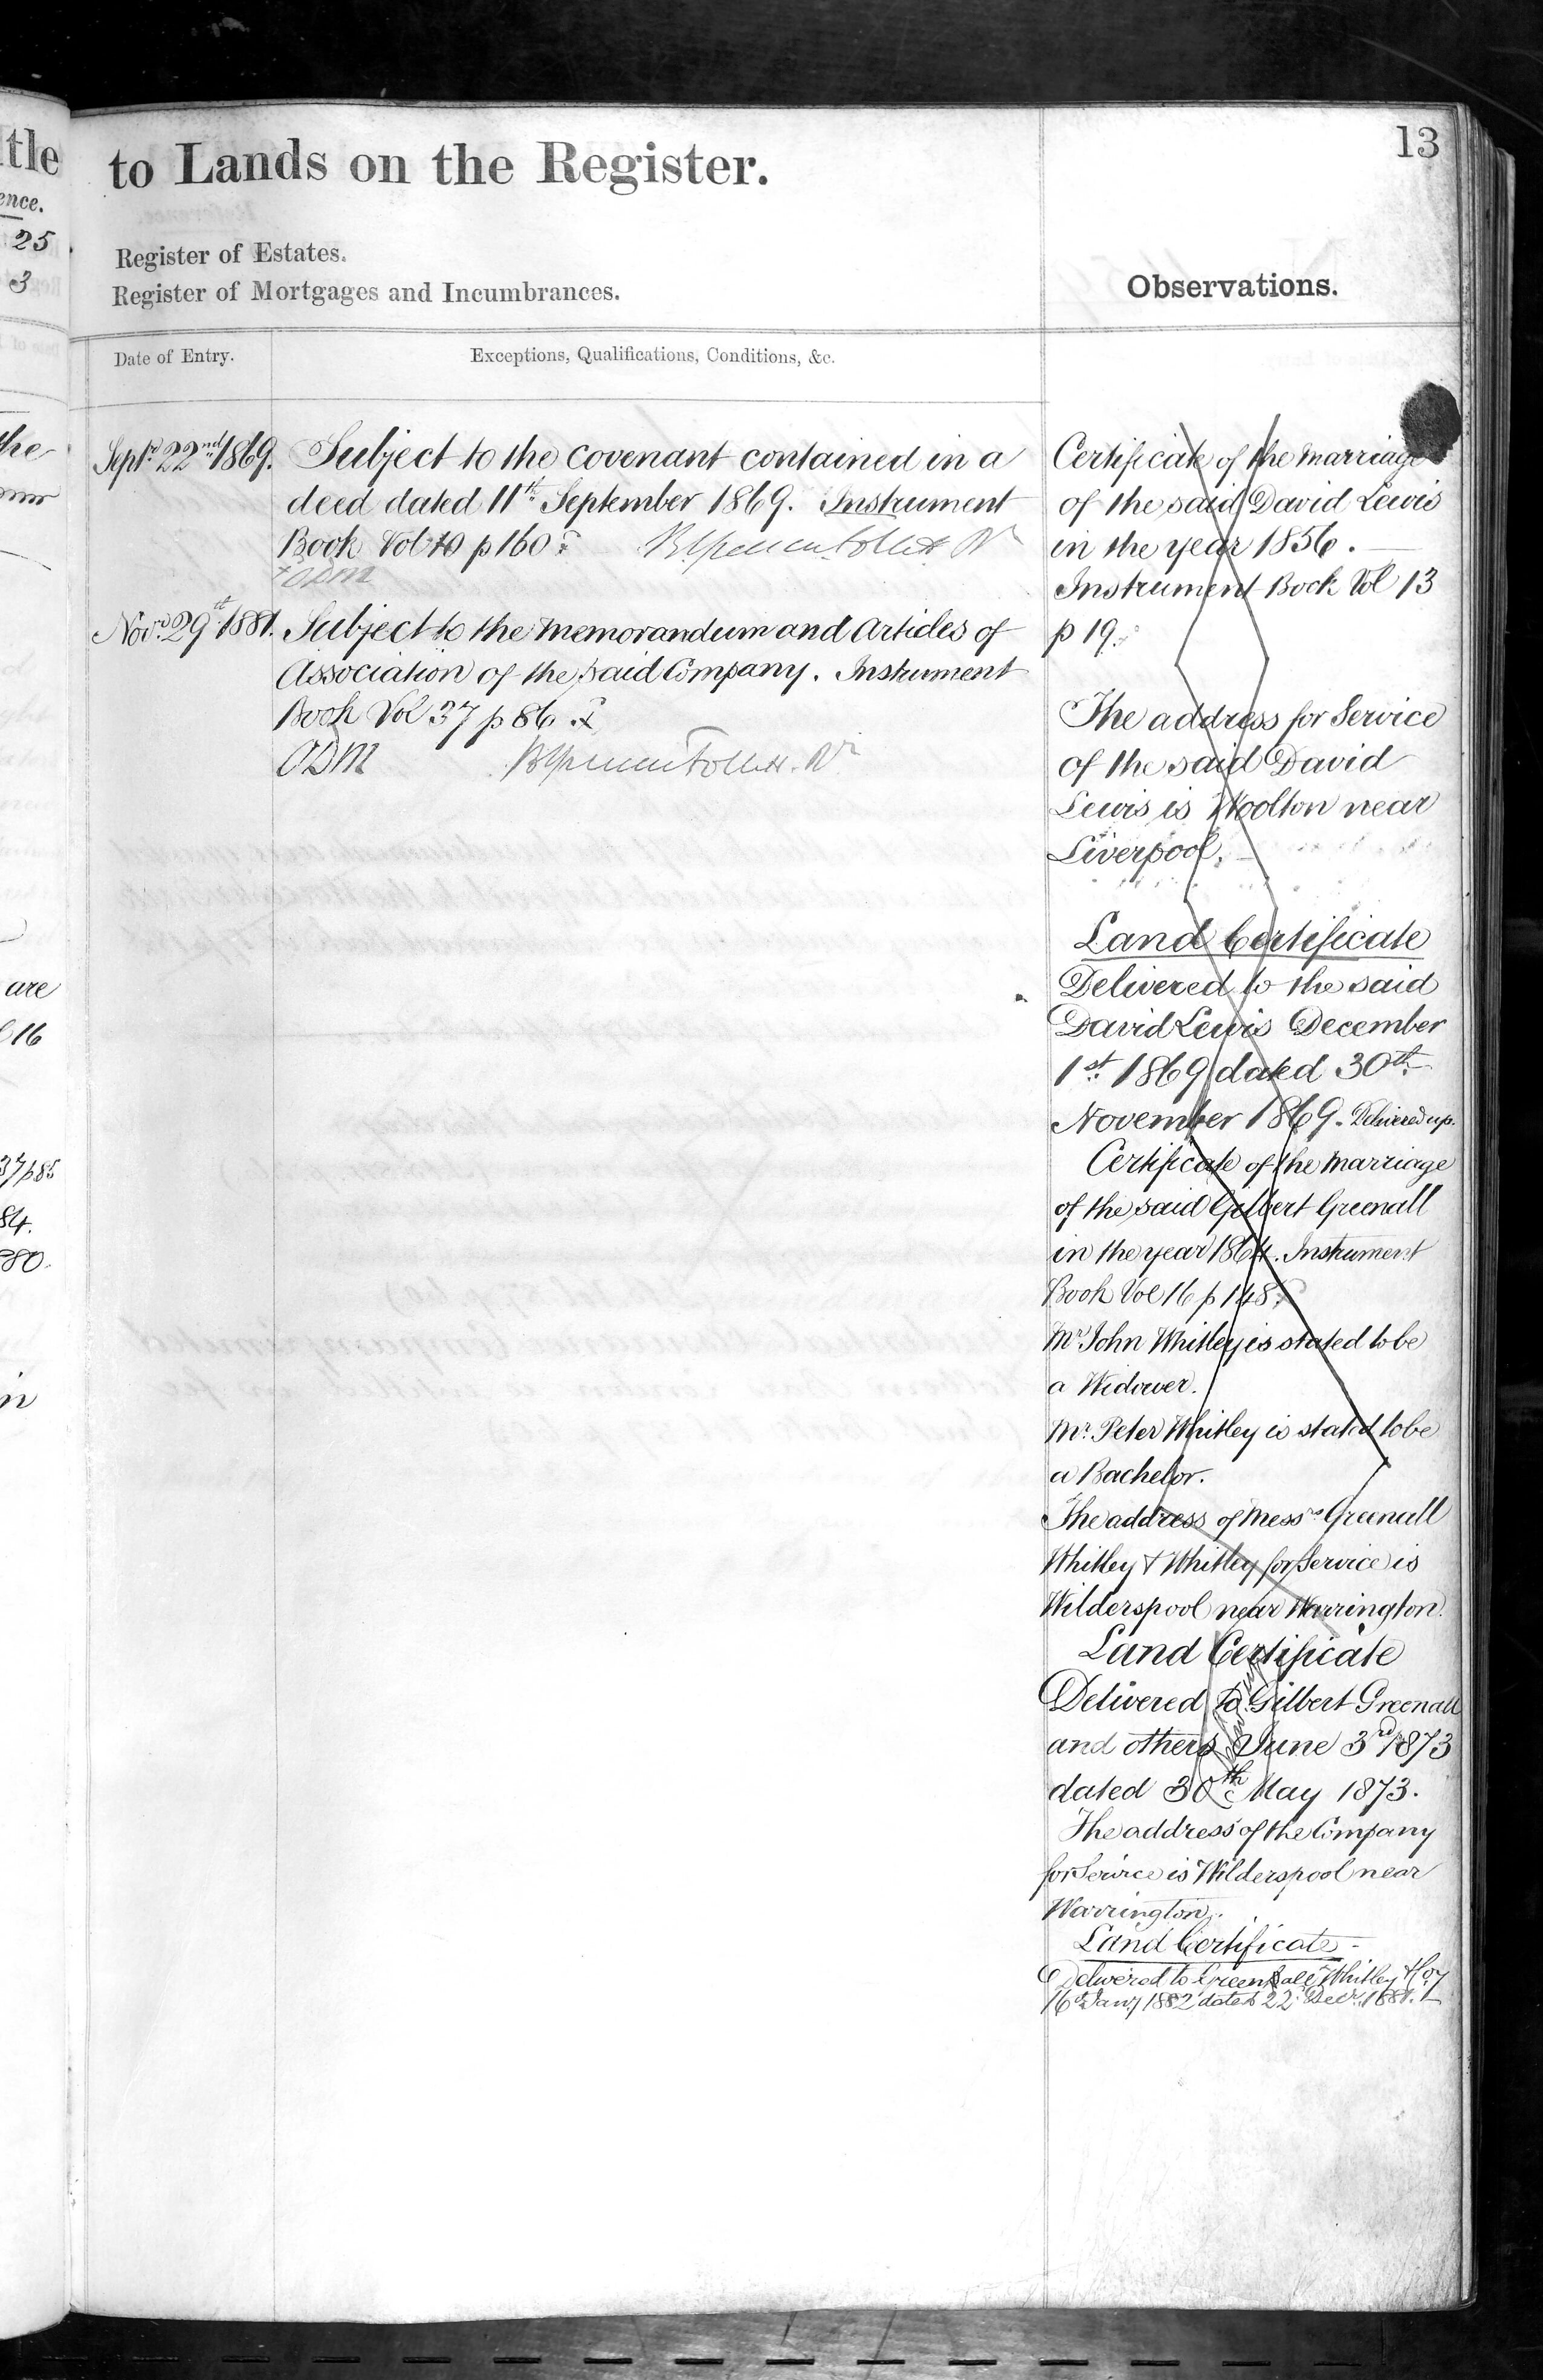 13
to Lands on the Register.
Register of Estates.
Register of Mortgages and Incumbrances.
Observations.
Date of Entry.
Exceptions, Qualifications, Conditions, &c.
Septr. 22nd 1869. Subject to the covenant contained in a
deed dated 11th September 1869. Instrument
Book Vol 10 p 160
ODM
Novr. 29th 1881. Subject to the Memorandum and Articles of
Association of the said Company. Instrument
Book Vol 37 p 86
ODM
Certificate of the Marriage
of the said David Lewis
in the year 1856.
Instrument Book Vol 13
p 19.
The address for Service
of the said David
Lewis is Woolton near
Liverpool.
Land Certificate
Delivered to the said
David Lewis December
1st 1869 dated 30th
November 1869. Delivered up.
Certificate of the Marriage
of the said Gilbert Greenall
in the year 1864. Instrument
Book Vol 16 p 148
Mr. John Whitley is stated to be
a Widower.
Mr. Peter Whitley is stated to be
a Bachelor.
The address of Messrs Greenall
Whitley & Whitley for Service is
Wilderspool near Warrington.
Land Certificate
Delivered to Gilbert Greenall
and others June 3rd 1873
dated 30th May 1873.
The address of the Company
for Service is Wilderspool near
Warrington.
Land Certificate
Delivered to Greenall Whitley & Coy
16th Jany 1882 dated 22 Decr. 1881.
tle
ence.
25
3
the
are
16
37 p 85
84.
880.
in